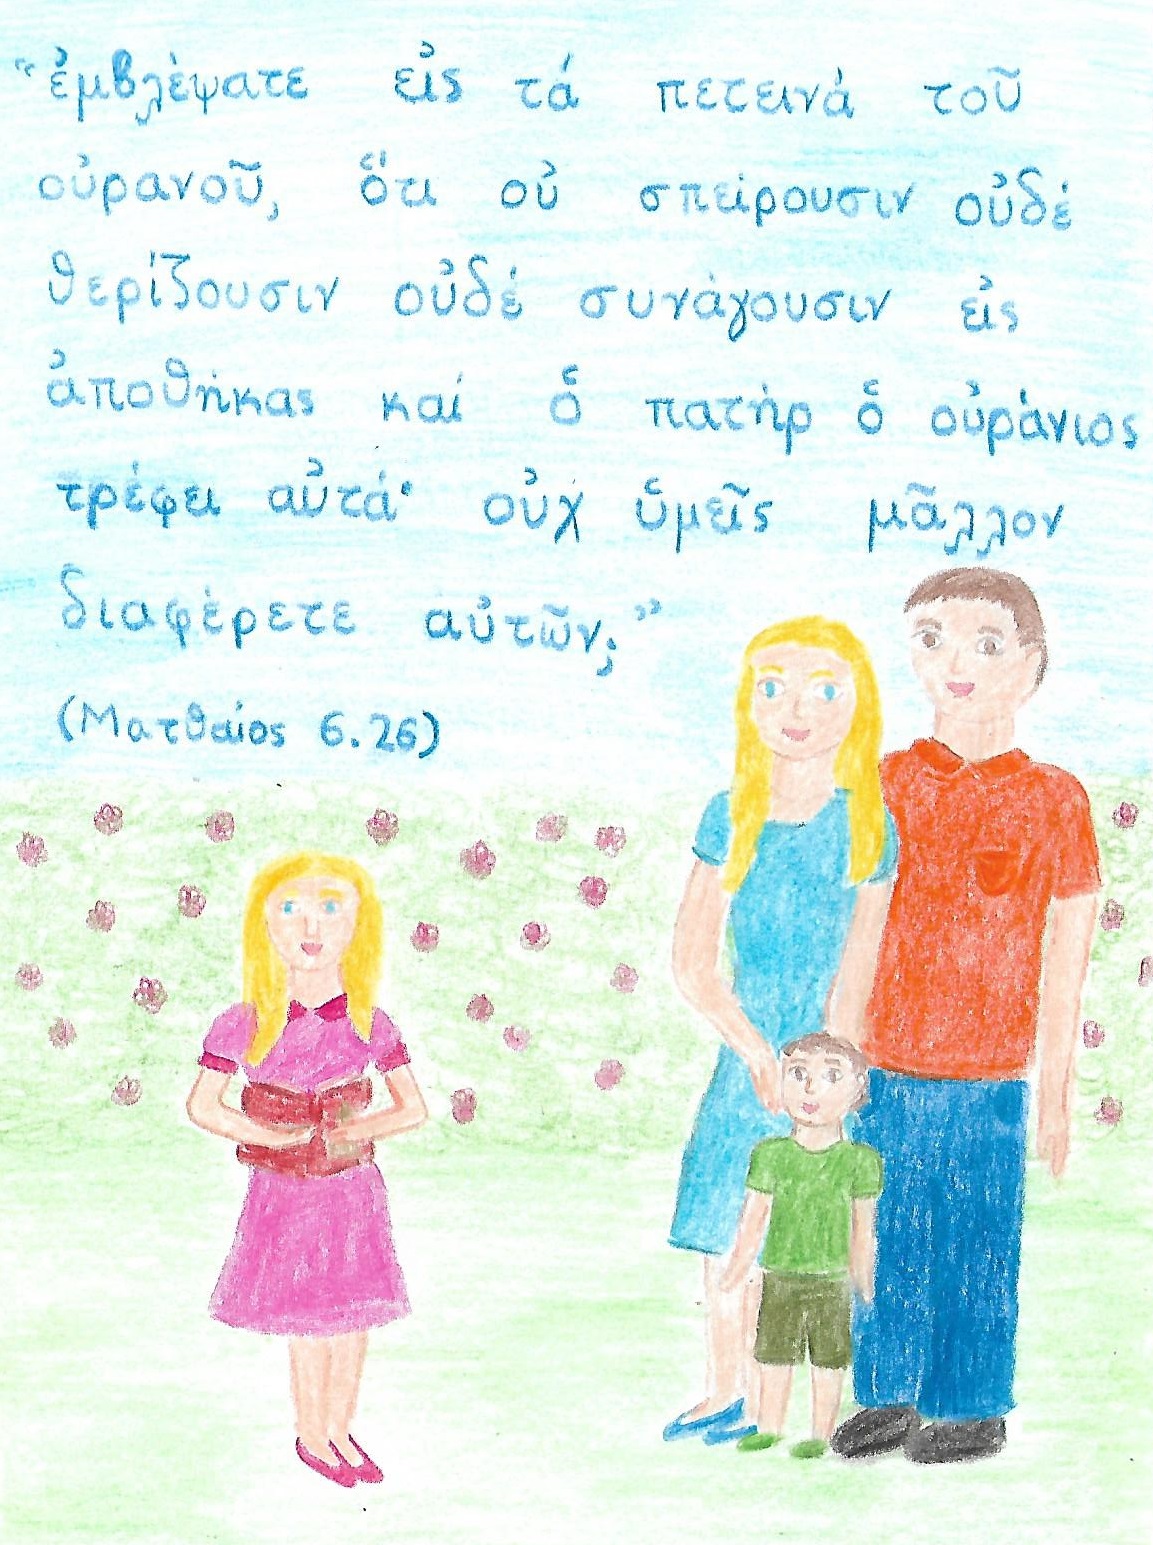 "ἐμβλέψατε εἰς τά πετεινά τοῦ
οὐρανοῦ, ὅτι οὐ σπείρουσιν οὐδέ
θερίζουσιν οὐδέ συνάγουσιν εἰς
ἀποθήκας καί ὁ πατήρ ὁ οὐράνιος
τρέφει αὐτά· οὐχ ὑμεῖς μᾶλλον
διαφέρετε αὐτῶν;"
(Ματθαίος 6.26)